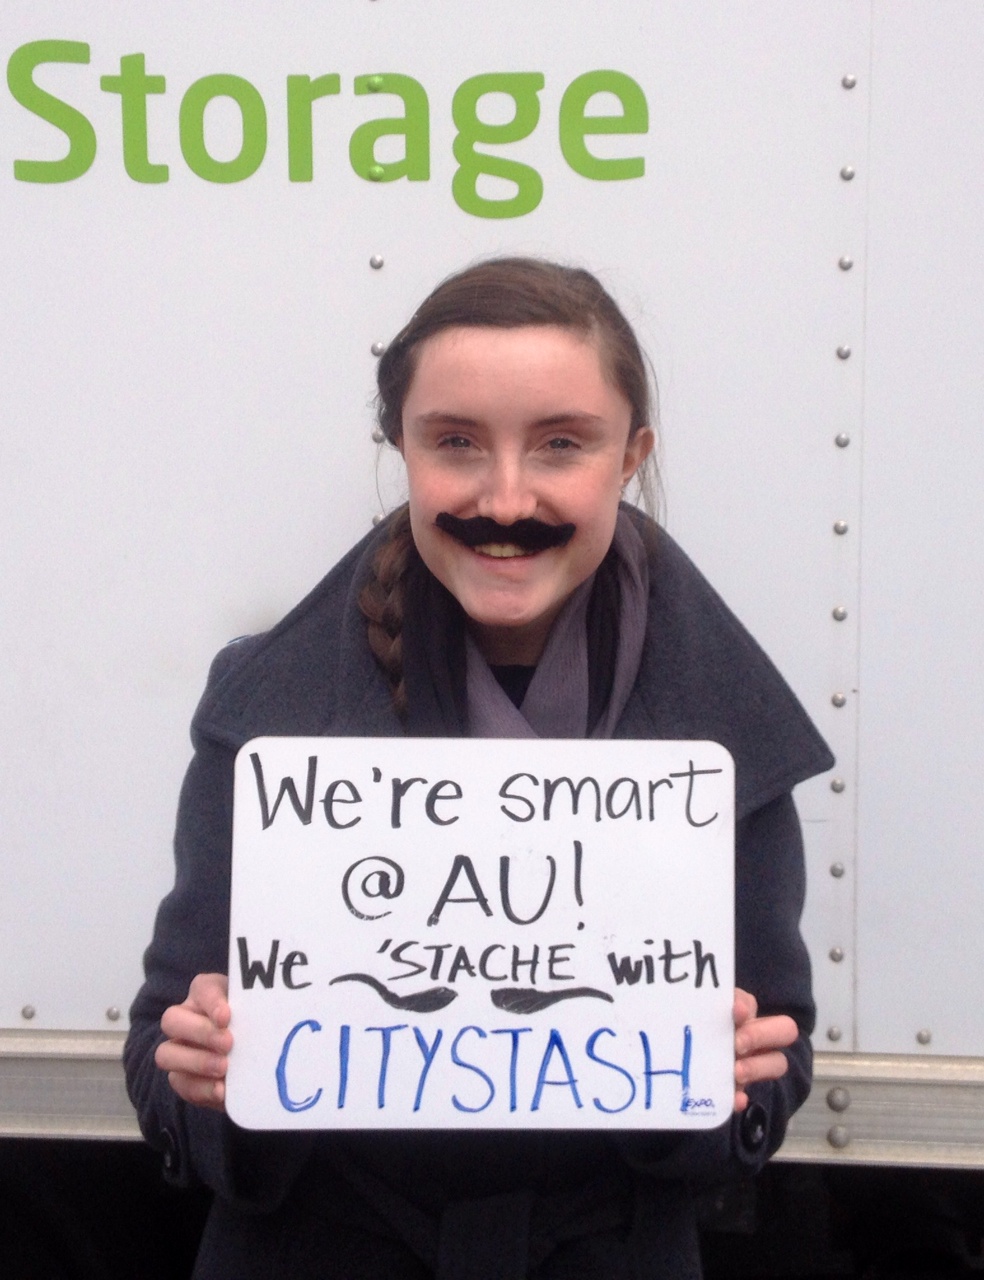 Storage
We're smart
@ AU!
We 'STACHE with
CITYSTASH
EXPO.